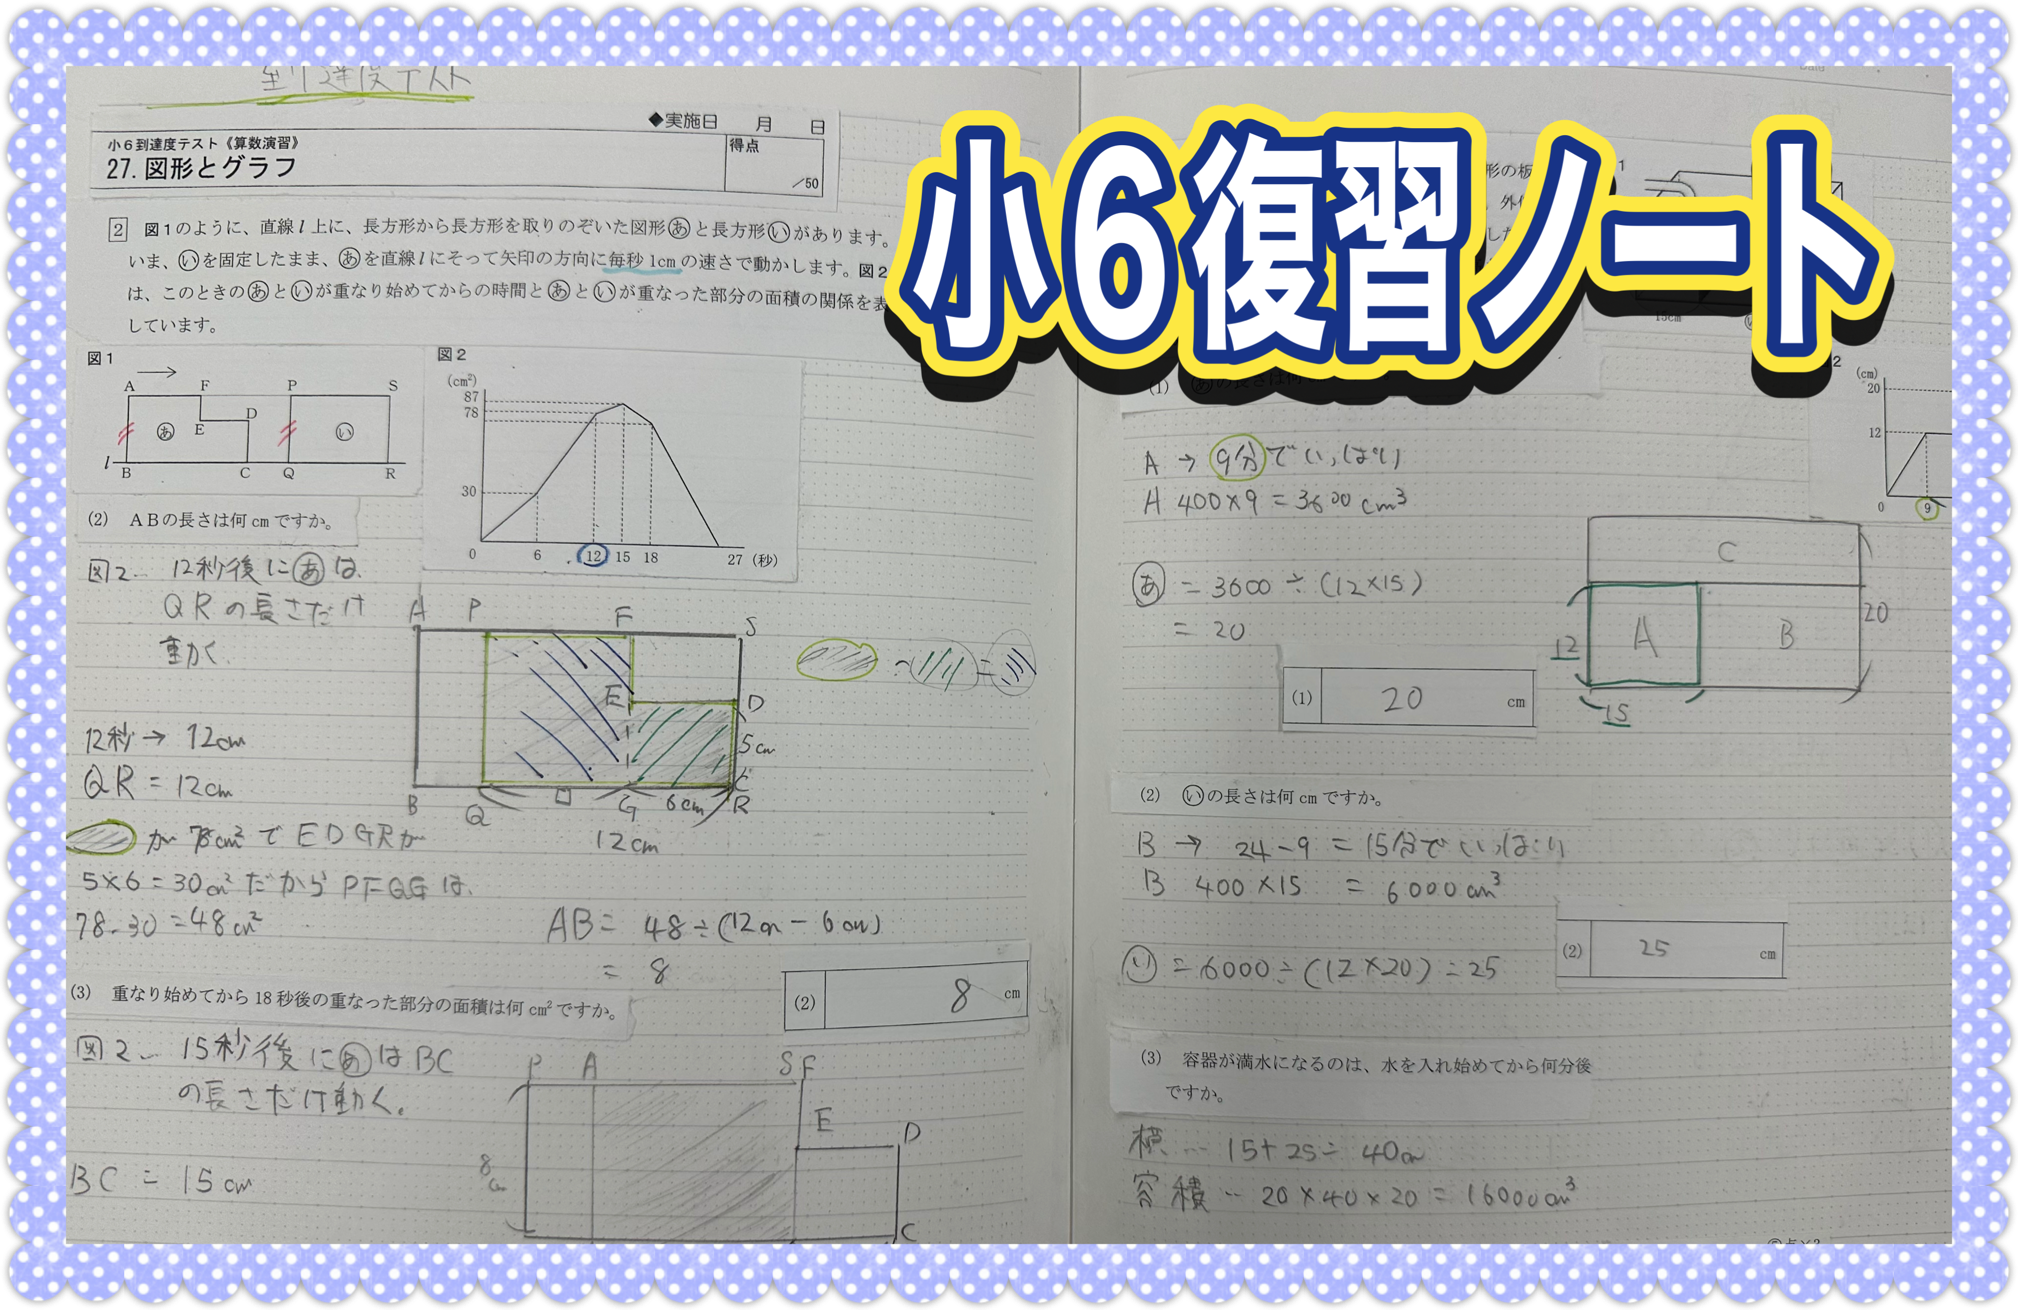 小6復習ノート
到達度テスト
◆実施日 月 日
小6到達度テスト《算数演習》
27. 図形とグラフ
得点
／50
2 図1のように、直線l上に、長方形から長方形を取りのぞいた図形あと長方形いがあります。
いま、いを固定したまま、あを直線lにそって矢印の方向に毎秒1cmの速さで動かします。図2
は、このときのあといが重なり始めてからの時間とあといが重なった部分の面積の関係を表
しています。
図1
A F P S
あ E D い
l B C Q R
図2
(cm²)
87
78
30
0 6 12 15 18 27 (秒)
(2) ABの長さは何cmですか。
図2… 12秒後にあは
QRの長さだけ
動く。
12秒→ 12cm
QR = 12cm
が 78cm²で EDGRが
5×6=30cm²だから PFQGは、
78-30=48cm²
A P F S
E D
5cm
B Q □ G 6cm C R
12cm
- =
AB= 48÷(12cm-6cm)
= 8
(2) 8 cm
(3) 重なり始めてから18秒後の重なった部分の面積は何cm²ですか。
図2… 15秒後にあはBC
の長さだけ動く。
BC = 15cm
P A S F
E D
8cm
C
形の板
外
した
1
15cm
い
2
(cm)
20
12
0 9
(1) あの長さは何
A → 9分でいっぱい
A 400×9=3600cm³
あ = 3600÷(12×15)
= 20
(1) 20 cm
C
A B
12
15
20
(2) いの長さは何cmですか。
B → 24-9 = 15分でいっぱい
B 400×15 = 6000cm³
い = 6000÷(12×20)=25
(2) 25 cm
(3) 容器が満水になるのは、水を入れ始めてから何分後
ですか。
横… 15+25= 40cm
容積… 20×40×20=16000cm³